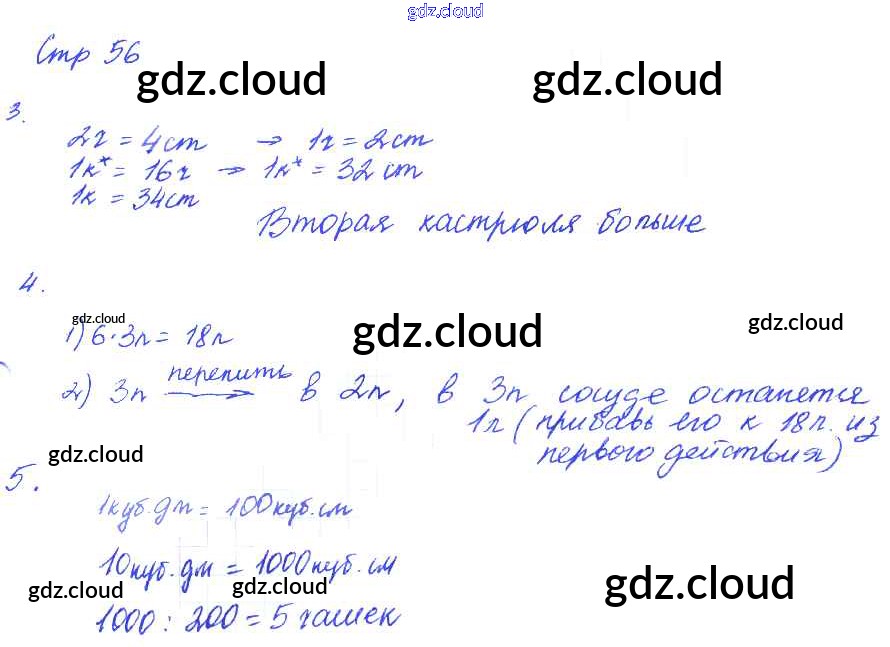 gdz.cloud
Стр 56
gdz.cloud gdz.cloud
3.
2ч = 4ст → 1ч = 2ст
1к* = 16ч → 1к* = 32ст
1к = 34ст
Вторая кастрюля больше
4.
gdz.cloud
gdz.cloud
gdz.cloud
1) 6·3л = 18л
2) 3л перелить в 2л, в 3л сосуде останется
1л (прибавь его к 18л. из
первого действия)
gdz.cloud
5.
1куб.дм = 100куб.см
10куб.дм = 1000куб.см
gdz.cloud gdz.cloud gdz.cloud
1000 : 200 = 5 чашек